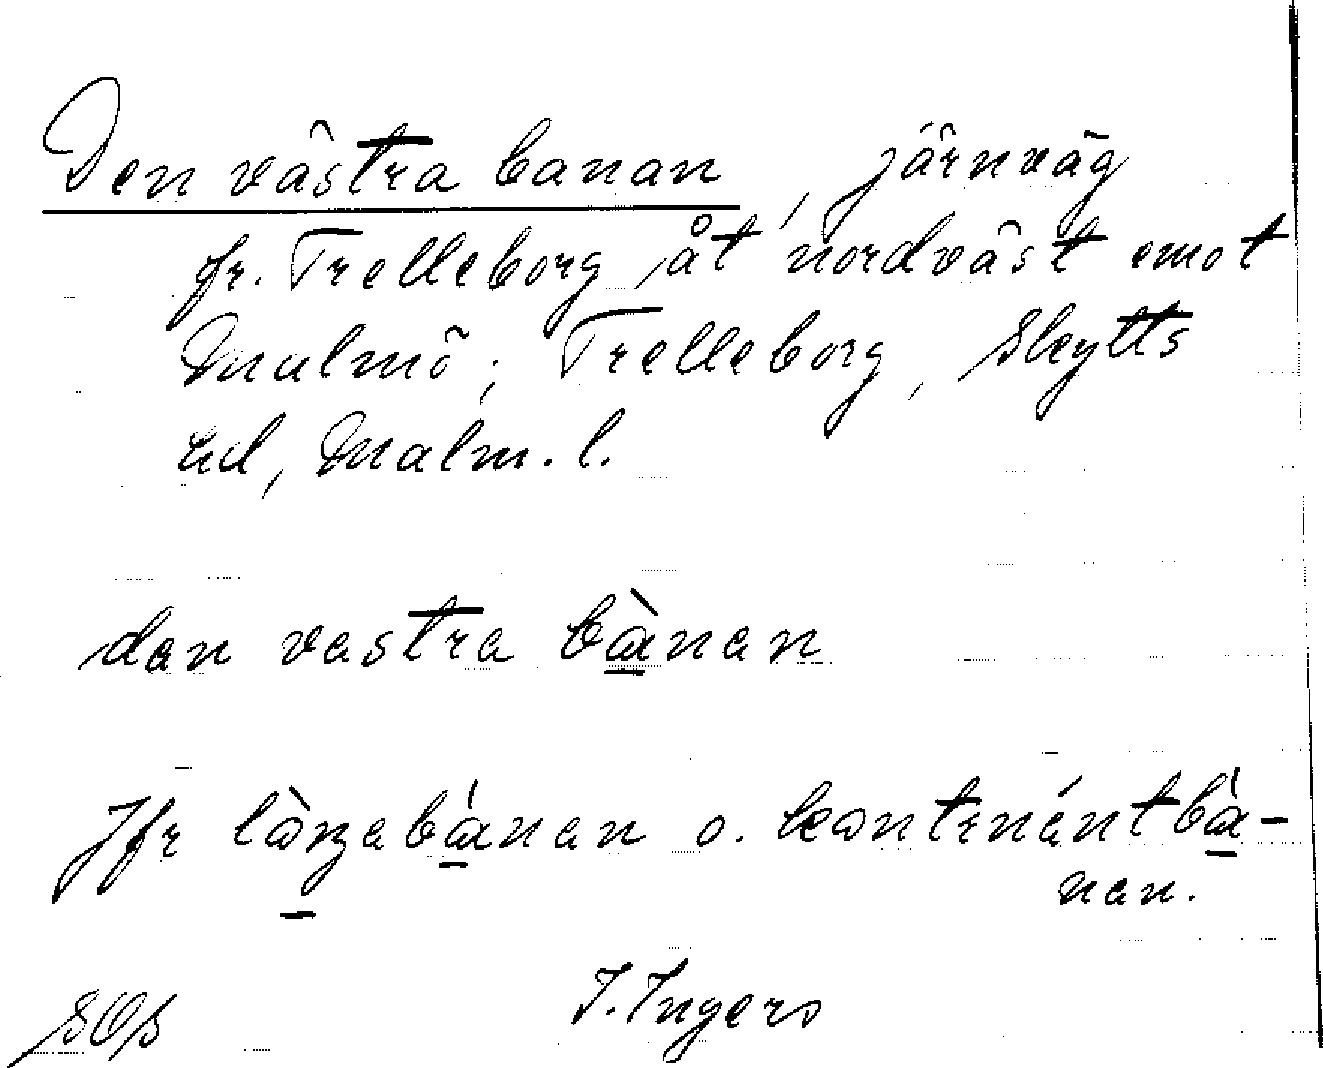 Den västra banan, järnväg
fr. Trelleborg åt nordväst emot
Malmö; Trelleborg, Skytts
hd, Malm. l.
dan vastra bànan
Jfr làŋabánan o. kontnántbà-
nan.
I. Ingers